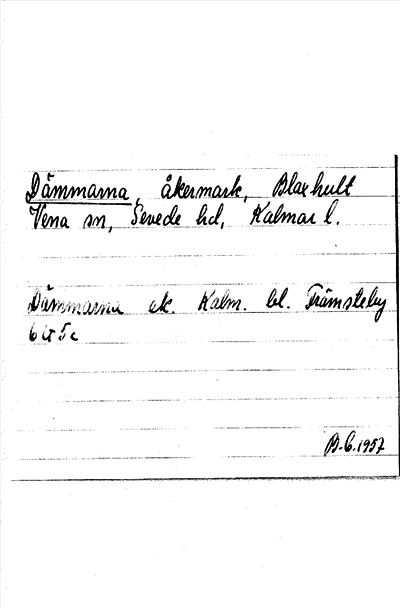 Dämmarna, åkermark, Blaxhult
Vena sn, Sevede hd, Kalmar l.
Dämmarna ek. Kalm. bl. Främsteby
6G5c
B.C. 1957